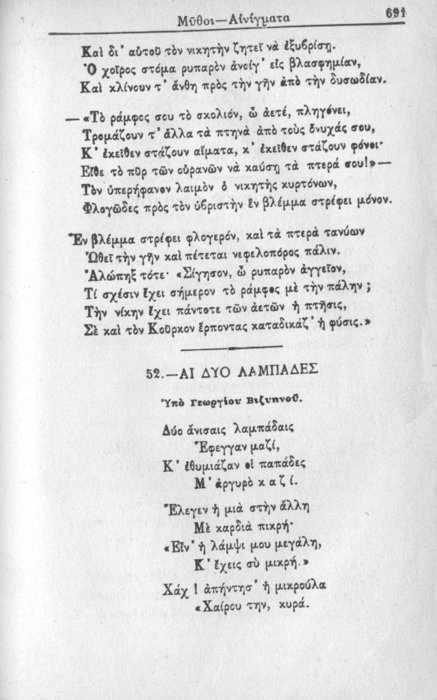 Μῦθοι—Αἰνίγματα
691
Καὶ δι' αὐτοῦ τὸν νικητὴν ζητεῖ νὰ ἐξυβρίσῃ.
Ὁ χοῖρος στόμα ρυπαρὸν ἀνοίγ' εἰς βλασφημίαν,
Καὶ κλίνουν τ' ἄνθη πρὸς τὴν γῆν ἀπὸ τὴν δυσωδίαν.
— «Τὸ ράμφος σου τὸ σκολιόν, ὦ ἀετέ, πληγόνει,
Τρομάζουν τ' ἄλλα τὰ πτηνὰ ἀπὸ τοὺς ὄνυχάς σου,
Κ' ἐκεῖθεν στάζουν αἵματα, κ' ἐκεῖθεν στάζουν φόνοι·
Εἴθε τὸ πῦρ τῶν οὐρανῶν νὰ καύσῃ τὰ πτερά σου!» —
Τὸν ὑπερήφανον λαιμὸν ὁ νικητὴς κυρτόνων,
Φλογῶδες πρὸς τὸν ὑβριστὴν ἓν βλέμμα στρέφει μόνον.
Ἓν βλέμμα στρέφει φλογερόν, καὶ τὰ πτερὰ τανύων
Ὠθεῖ τὴν γῆν καὶ πέτεται νεφελοπόρος πάλιν.
Ἀλώπηξ τότε· «Σίγησον, ὦ ρυπαρὸν ἀγγεῖον,
Τί σχέσιν ἔχει σήμερον τὸ ράμφος μὲ τὴν πάλην;
Τὴν νίκην ἔχει πάντοτε τῶν ἀετῶν ἡ πτῆσις,
Σὲ καὶ τὸν Κοῦρκον ἕρποντας καταδικάζ' ἡ φύσις.»
52.—ΑΙ ΔΥΟ ΛΑΜΠΑΔΕΣ
Ὑπὸ Γεωργίου Βιζυηνοῦ.
Δύο ἄνισαις λαμπάδαις
Ἔφεγγαν μαζί,
Κ' ἐθυμιάζαν οἱ παπάδες
Μ' ἀργυρὸ καζί.
Ἔλεγεν ἡ μιὰ στὴν ἄλλη
Μὲ καρδιὰ πικρή·
«Εἶν' ἡ λάμψι μου μεγάλη,
Κ' ἔχεις σὺ μικρή.»
Χάχ! ἀπήντησ' ἡ μικροῦλα
«Χαίρου την, κυρά.